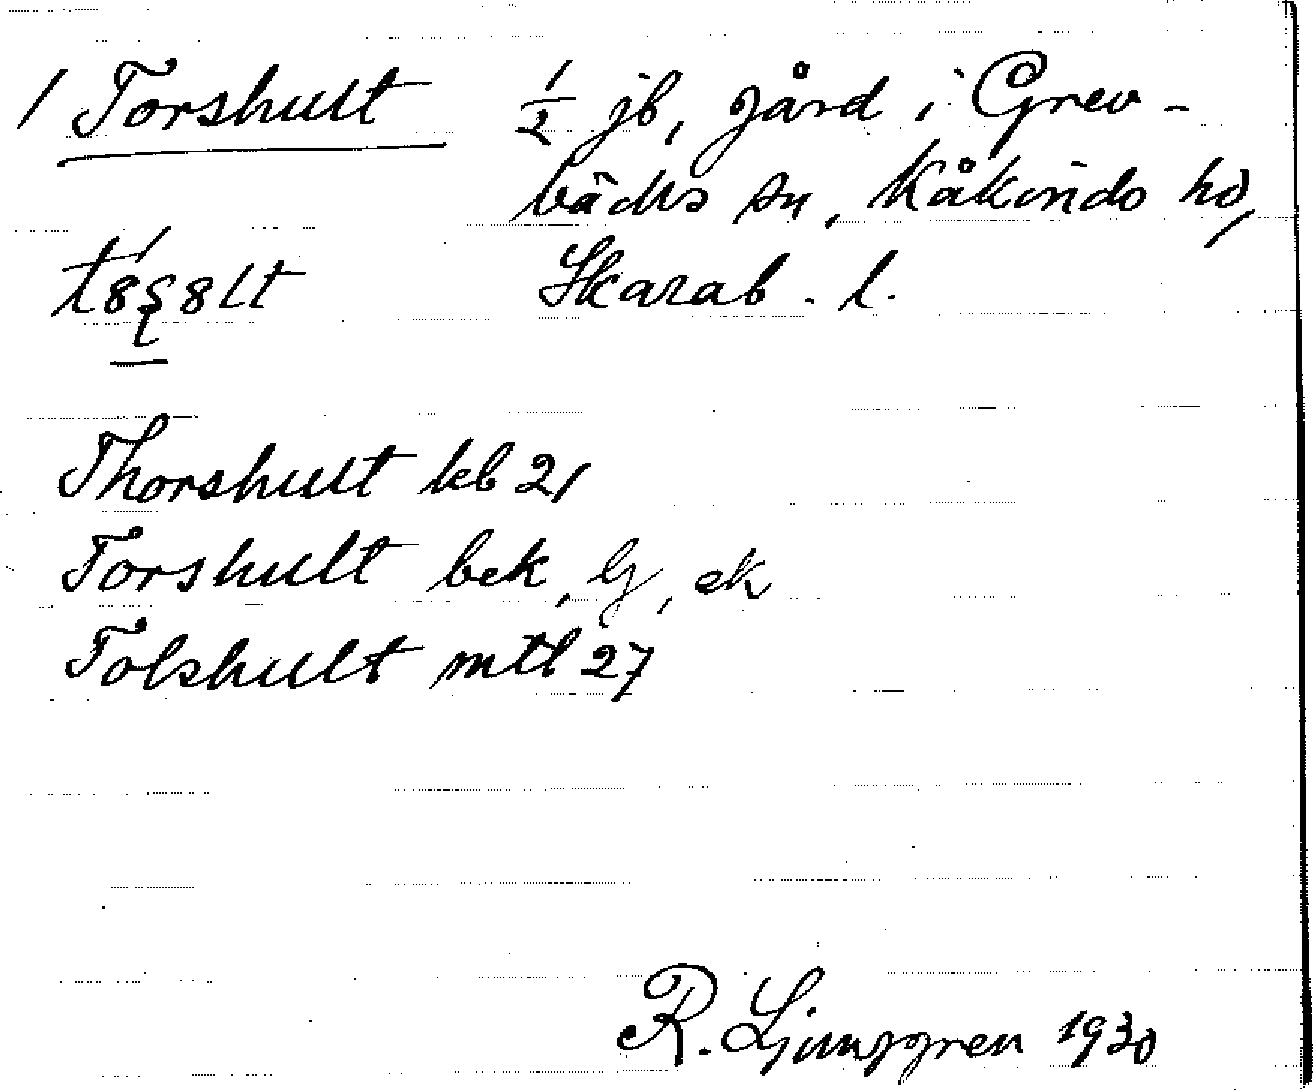 / Torshult ½ jb, gård i Grev-
bäcks sn, Kåkinds hd,
Skarab. l.
Thorshult kb 21
Torshult bek, Gj, ek
Tolshult mtl 27
R. Ljunggren 1930